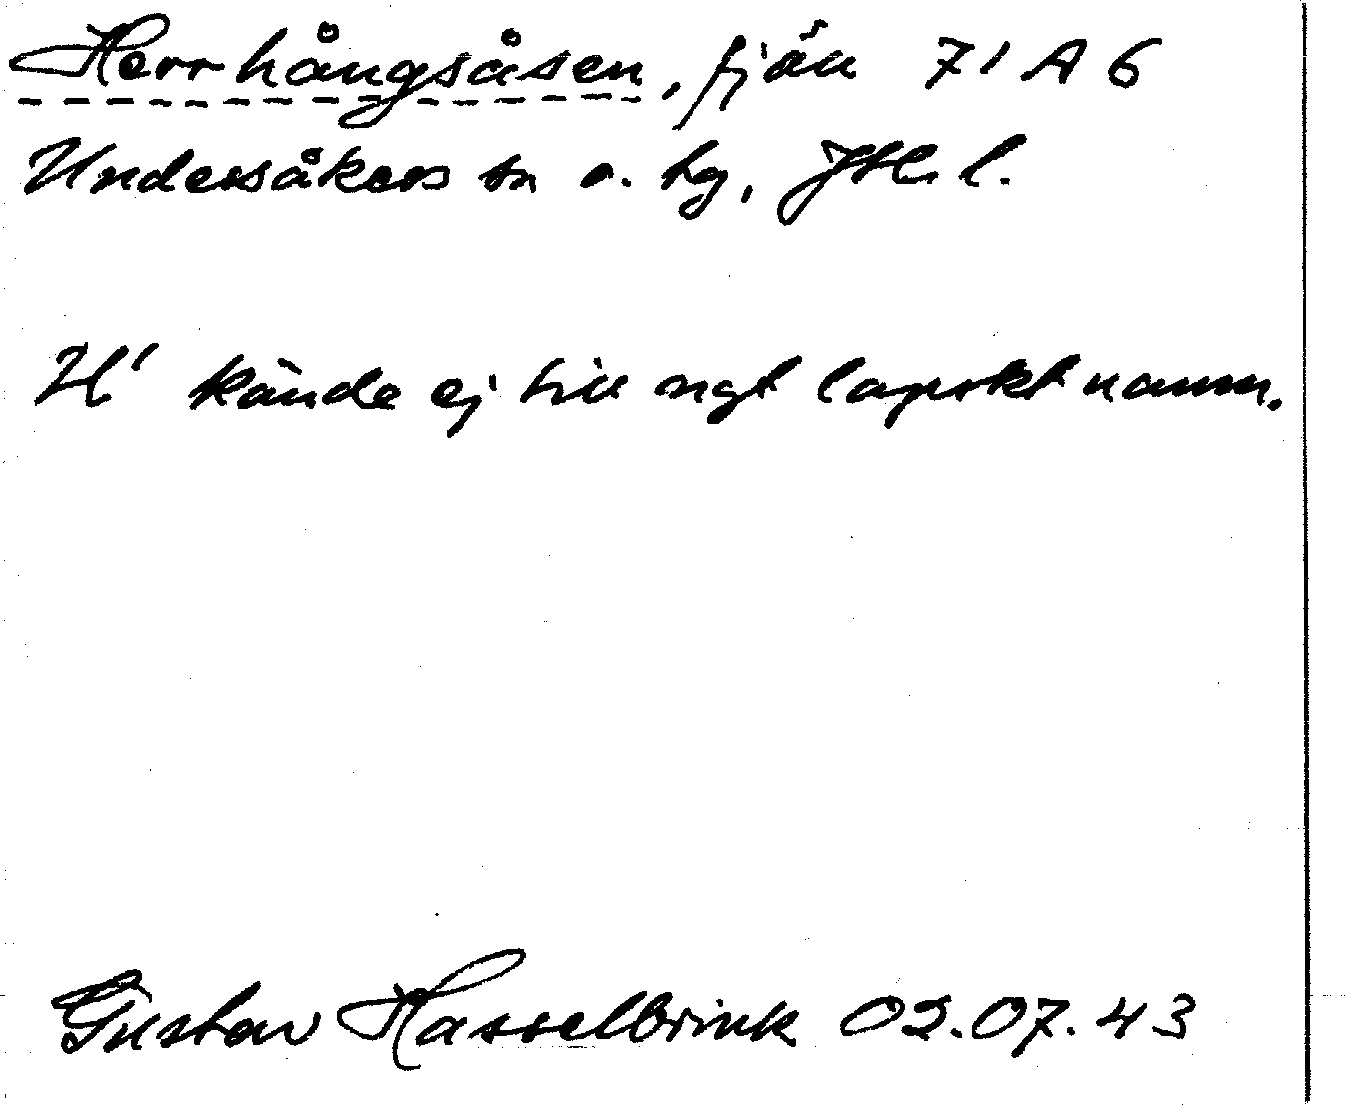 Herrhångsåsen, fjäll 71 A 6
Undersåkers sn o. tg, Jtl. l.
H' kände ej till ngt lapskt namn.
Gustav Hasselbrink 02.07.43